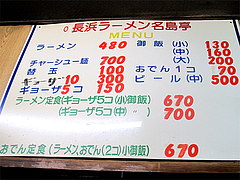 長浜ラーメン名島亭
MENU
ラーメン 480 御飯(小) 130
(中)
チャーシュー麺 700 (大) 200
替玉 100 おでん1コ 70
ギョーザ10 300 ビール(中) 500
ギョーザ5コ 150
ラーメン定食(ギョーザ5コ小御飯) 670
(ギョーザ5コ中) 700
おでん定食(ラーメン、おでん(2コ)小御飯) 670